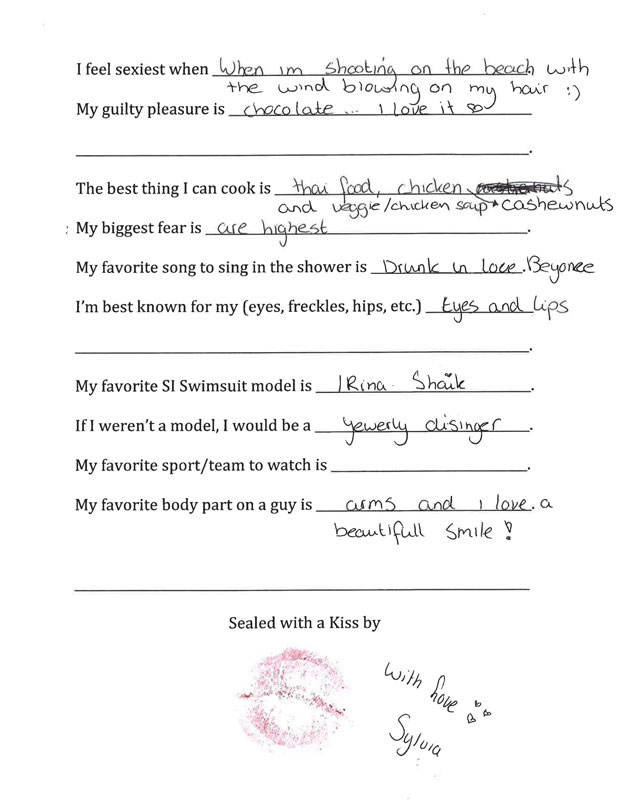 I feel sexiest when When im shooting on the beach with
the wind blowing on my hair :)
My guilty pleasure is chocolate ... I love it
.
The best thing I can cook is thai food, chicken
and veggie/chicken soup * cashewnuts
: My biggest fear is are highest.
My favorite song to sing in the shower is Drunk in love. Beyonce
I'm best known for my (eyes, freckles, hips, etc.) Eyes and Lips
.
My favorite SI Swimsuit model is IRina Shaik.
If I weren't a model, I would be a yewerly disinger.
My favorite sport/team to watch is .
My favorite body part on a guy is arms and I love. a
beautifull smile !
Sealed with a Kiss by
With love
Sylvia